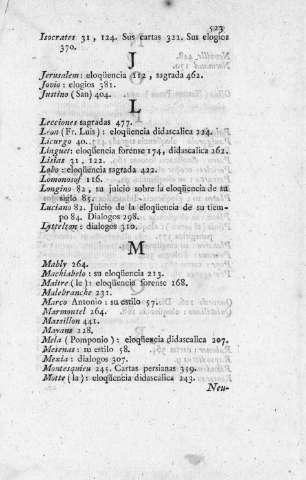 523
Isocrates 31, 124. Sus cartas 322. Sus elogios
370.
J
Jerusalem: eloqüencia 112, sagrada 462.
Jovio: elogios 381.
Justino (San) 404.
L
Lecciones sagradas 477.
Leon (Fr. Luis): eloqüencia didascalica 224.
Licurgo 40.
Linguet: eloqüencia forense 174, didascalica 262.
Lisias 31, 122.
Lobo: eloqüencia sagrada 422.
Lomonosof 116.
Longino 82, su juicio sobre la eloqüencia de su
siglo 85.
Luciano 82. Juicio de la eloqüencia de su tiem-
po 84. Dialogos 298.
Lyttelton: dialogos 310.
M
Mably 264.
Machiabelo: su eloqüencia 213.
Maitre (le): eloqüencia forense 168.
Malebranche 231.
Marco Antonio: su estilo 57.
Marmontel 264.
Massillon 441.
Mayans 228.
Mela (Pomponio): eloqüencia didascalica 207.
Mesenas: su estilo 58.
Mexia: dialogos 307.
Montesquieu 245. Cartas persianas 359.
Motte (la): eloqüencia didascalica 243.
Neu-